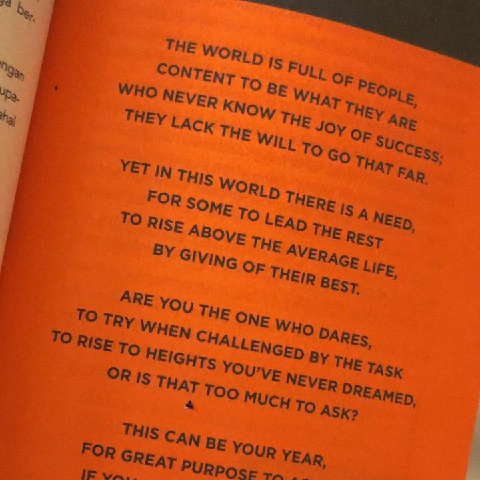 ga ber-
ngan
upa-
ahal
THE WORLD IS FULL OF PEOPLE,
CONTENT TO BE WHAT THEY ARE
WHO NEVER KNOW THE JOY OF SUCCESS;
THEY LACK THE WILL TO GO THAT FAR.
YET IN THIS WORLD THERE IS A NEED,
FOR SOME TO LEAD THE REST
TO RISE ABOVE THE AVERAGE LIFE,
BY GIVING OF THEIR BEST.
ARE YOU THE ONE WHO DARES,
TO TRY WHEN CHALLENGED BY THE TASK
TO RISE TO HEIGHTS YOU'VE NEVER DREAMED,
OR IS THAT TOO MUCH TO ASK?
THIS CAN BE YOUR YEAR,
FOR GREAT PURPOSE TO
IF YOU